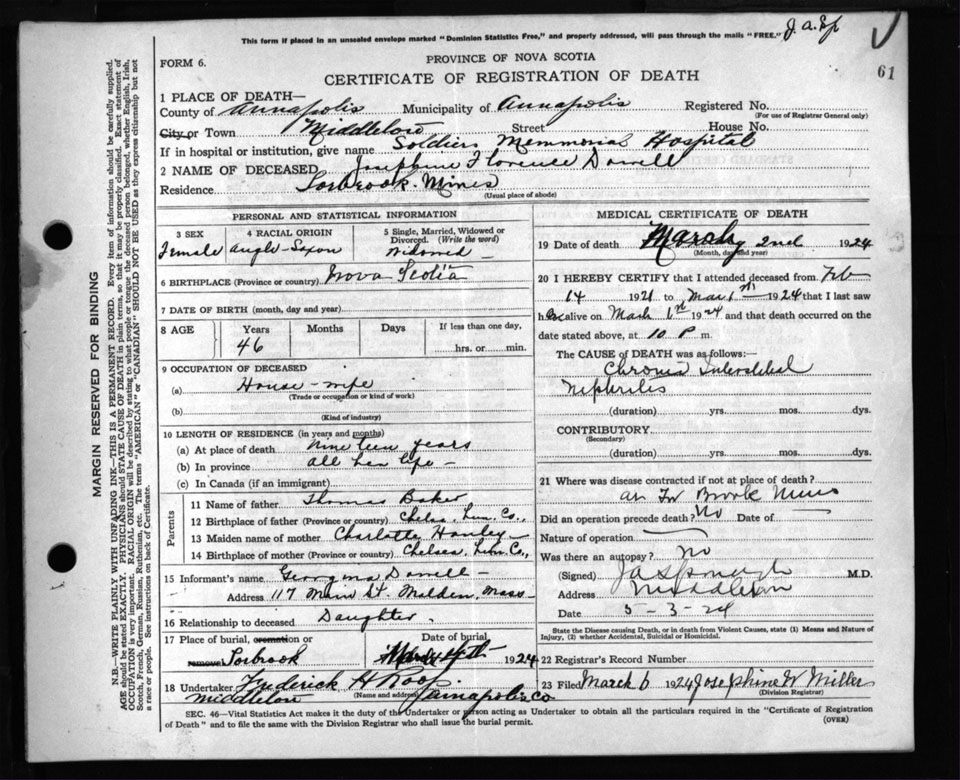 This form if placed in an unsealed envelope marked "Dominion Statistics Free," and properly addressed, will pass through the mails "FREE."
J.a.
61
FORM 6.
PROVINCE OF NOVA SCOTIA
CERTIFICATE OF REGISTRATION OF DEATH
1 PLACE OF DEATH—
County of Annapolis Municipality of Annapolis Registered No.
(For use of Registrar General only)
City or Town Middleton Street House No.
If in hospital or institution, give name Soldiers Memmorial Hospital
2 NAME OF DECEASED Josephine Florence Dowell
Residence Torbrook Mines
(Usual place of abode)
PERSONAL AND STATISTICAL INFORMATION
3 SEX 4 RACIAL ORIGIN 5 Single, Married, Widowed or
Divorced. (Write the word)
Female Anglo-Saxon Widowed
6 BIRTHPLACE (Province or country) Nova Scotia
7 DATE OF BIRTH (month, day and year)
8 AGE Years Months Days If less than one day,
46 hrs. or min.
9 OCCUPATION OF DECEASED
(a) House-wife
(Trade or occupation or kind of work)
(b)
(Kind of industry)
10 LENGTH OF RESIDENCE (in years and months)
(a) At place of death nineteen years
(b) In province all her life
(c) In Canada (if an immigrant)
Parents
11 Name of father Thomas Baker
12 Birthplace of father (Province or country) Chelsea, Lun. Co.,
13 Maiden name of mother Charlotte
14 Birthplace of mother (Province or country) Chelsea, Lun. Co.,
15 Informant's name Georgina Dowell
Address 117 Main St. Malden, Mass
16 Relationship to deceased Daughter
17 Place of burial, cremation or Date of burial
removal Torbrook 1924
18 Undertaker Frederick H Roop
Middleton (Name and address) Annapolis Co
MEDICAL CERTIFICATE OF DEATH
19 Date of death March 2nd 1924
(Month, day and year)
20 I HEREBY CERTIFY that I attended deceased from Feb
14 1921 to Mar 1st 1924 that I last saw
her alive on March 1st 1924 and that death occurred on the
date stated above, at 10 P m.
The CAUSE OF DEATH was as follows:—
Chronic Interstitial
Nephritis
(duration) yrs. mos. dys.
CONTRIBUTORY
(Secondary)
(duration) yrs. mos. dys.
21 Where was disease contracted if not at place of death?
Brook Mines
Did an operation precede death? No Date of
Nature of operation
Was there an autopsy? No
(Signed) M.D.
Address Middleton
Date 5-3-24
State the Disease causing Death, or in death from Violent Causes, state (1) Means and Nature of
Injury, (2) whether Accidental, Suicidal or Homicidal.
22 Registrar's Record Number
23 Filed March 6 1924 Josephine W Miller
(Division Registrar)
SEC. 46—Vital Statistics Act makes it the duty of the Undertaker or person acting as Undertaker to obtain all the particulars required in the "Certificate of Registration
of Death" and to file the same with the Division Registrar who shall issue the burial permit.
(OVER)
MARGIN RESERVED FOR BINDING
N.B.—WRITE PLAINLY WITH UNFADING INK—THIS IS A PERMANENT RECORD. Every item of information should be carefully supplied.
AGE should be stated EXACTLY. PHYSICIANS should STATE CAUSE OF DEATH in plain terms, so that it may be properly classified. Exact statement of
OCCUPATION is very important. RACIAL ORIGIN will be described by stating to what people or tongue the deceased person belonged, whether English, Irish,
Scotch, French, German, Russian, Ruthenian, etc. The terms "AMERICAN" or "CANADIAN" SHOULD NOT BE USED as they express citizenship but not
a race or people. See instructions on back of Certificate.